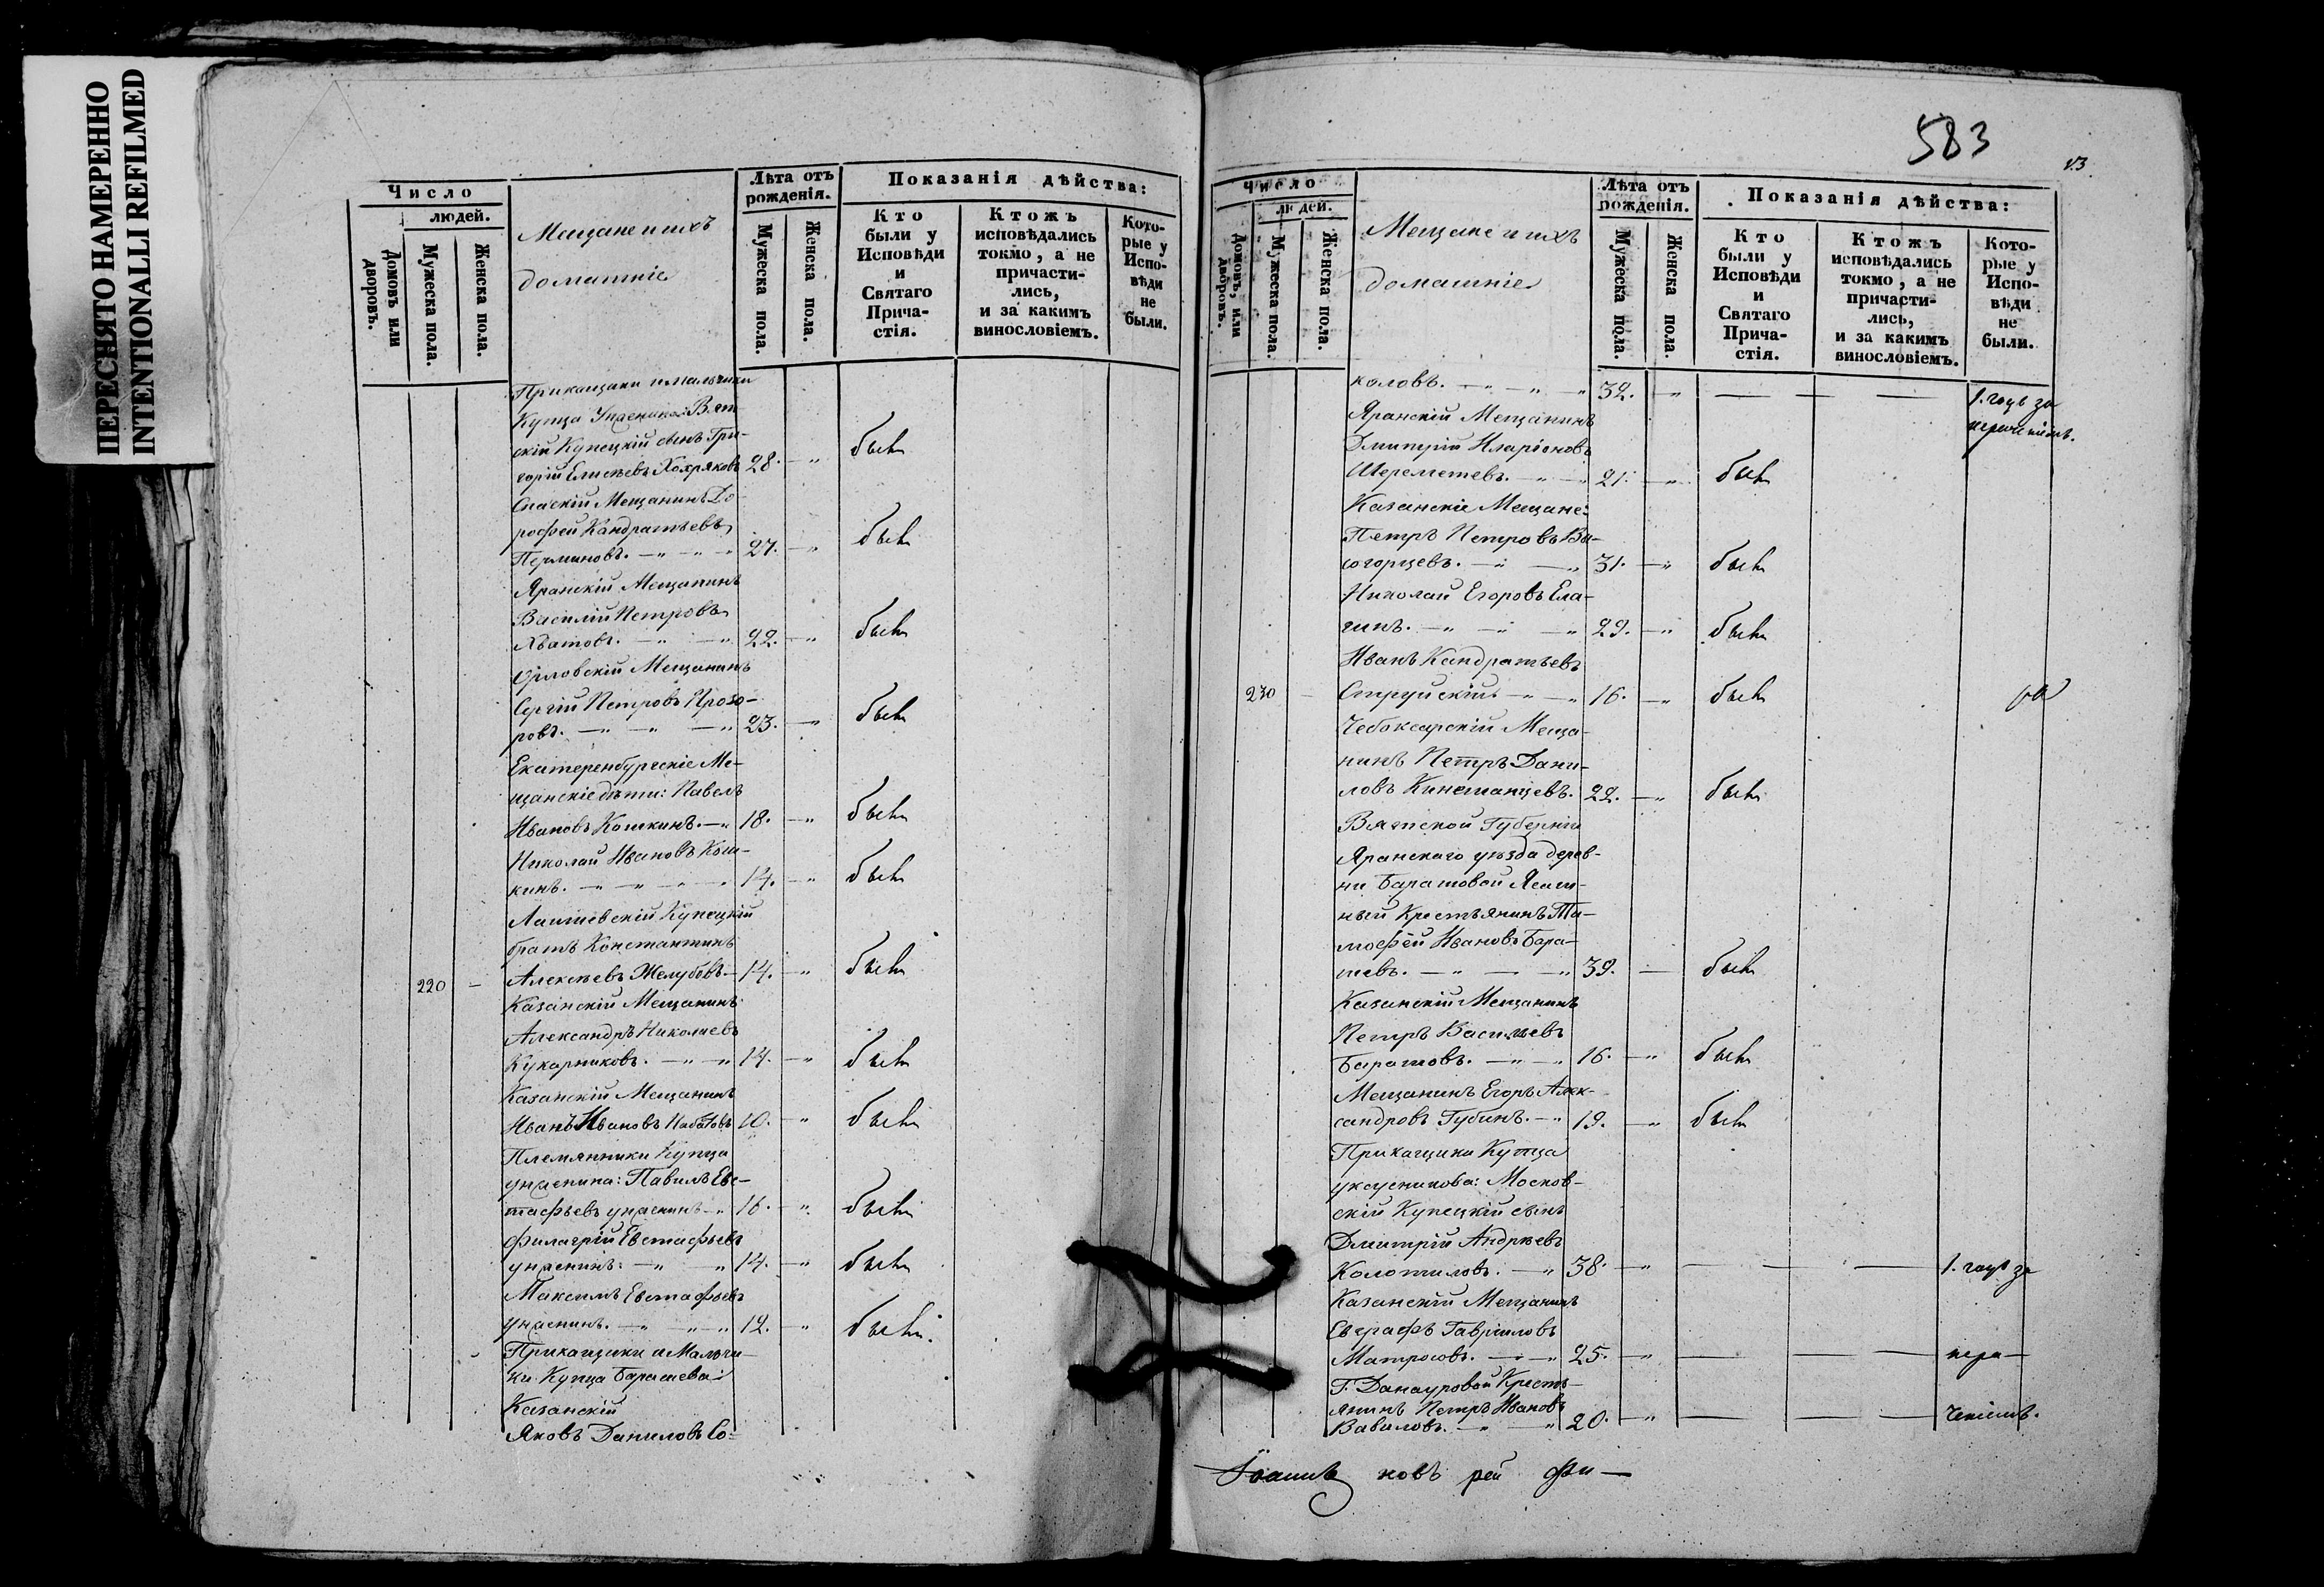 ПЕРЕСНЯТО НАМЕРЕННО
INTENTIONALLI REFILMED
Число
людей.
Домовъ или дворовъ.
Мужеска пола.
Женска пола.
Мещане и ихъ
домашніе
Лѣта отъ рожденія.
Мужеска пола.
Женска пола.
Показанія дѣйства:
Кто были у Исповѣди и Святаго Прича-
стія.
Ктожъ исповѣдались токмо, а не причасти-
лись, и за какимъ винословіемъ.
Кото-
рые у Испо-
вѣди не были.
Прикащики и мальчики
Купца Унженина: Вят-
скій Купецкій сынъ Гри-
горій Елисѣевъ Хохряковъ 28. — „ былъ
Спаскій Мещанинъ До-
рофей Кандратьевъ
Перминовъ. — „ — „ — „ 27. — „ былъ
Яранскій Мещанинъ
Василій Петровъ
Хватовъ. — „ — „ 22. — „ былъ
Орловскій Мещанинъ
Сергій Петровъ Прозо-
ровъ. — „ — „ — „ 23. — „ былъ
Екатеренбургскіе Ме-
щанскіе дѣти: Павелъ
Ивановъ Кошкинъ. — „ 18. — „ былъ
Николай Ивановъ Кош-
кинъ. — „ — „ — „ — „ 14. — „ былъ
Лаишевскій Купецкій
братъ Константинъ
220 — Алексѣевъ Желубовъ. — 14. — „ былъ
Казанскій Мещанинъ
Александръ Николаевъ
Кукарниковъ. — „ — „ 14. — „ былъ
Казанскій Мещанинъ
Иванъ Ивановъ Набатовъ 10. — „ былъ
Племянники Купца
Унженина: Павилъ Евс-
тафьевъ Унженинъ — „ 16. — „ былъ
Филагрій Евстафьевъ
Унженинъ: — „ — „ 14. — „ былъ
Максимъ Евстафьевъ
Унженинъ. — „ — „ — „ 12. — „ былъ.
Прикащики и Мальчи-
ки Купца Барашева:
Казанскій
Яковъ Даниловъ Со-
583
Число
людей.
Домовъ, или дворовъ.
Мужеска пола.
Женска пола.
Мещане и ихъ
домашніе
Лѣта отъ рожденія.
Мужеска пола.
Женска пола.
Показанія дѣйства:
Кто были у Исповѣди и Святаго Прича-
стія.
Ктожъ исповѣдались токмо, а не причасти-
лись, и за какимъ винословіемъ.
Кото-
рые у Испо-
вѣди не были.
коловъ. — „ — „ — „ 32. — „ — — — 1. годъ за
нераченіемъ.
Яранскій Мещанинъ
Дмитрій Иларіоновъ
Шереметевъ. — „ — „ 21. — „ былъ
Казанскіе Мещане:
Петръ Петровъ Вы-
согорцевъ. — „ — „ 31. — „ былъ
Николай Егоровъ Ела-
гинъ. — „ — „ — „ 29. — „ былъ
Иванъ Кандратьевъ
230 — Струйскій. — „ — „ 16. — „ былъ
Чебоксарскій Меща-
нинъ Петръ Дани-
ловъ Кинешанцевъ. 22. — „ былъ
Вятской Губерніи
Яранскаго уѣзда дерев-
ни Баратовой Ясаш-
ный Крестьянинъ Ти-
мофей Ивановъ Бара-
шевъ. — „ — — „ 39. — былъ
Казанскій Мещанинъ
Петръ Васильевъ
Баратовъ. — „ — „ 16. — „ былъ
Мещанинъ Егоръ Алек-
сандровъ Губинъ. — „ 19. — „ былъ
Прикащики Купца
Уксусникова: Москов-
скій Купецкій сынъ
Дмитрій Андрѣевъ
Колотиловъ. — „ 38. — „ — — — 1. годъ за
Казанскій Мещанинъ
Евграфъ Гавриловъ
Матросовъ. — „ — „ 25. — „ — — — нера-
Г. Данауровой Кресть-
янинъ Петръ Ивановъ
Вавиловъ. — „ — „ 20. — „ — — — ченіемъ.
Іоаннъ новъ рей Фи —